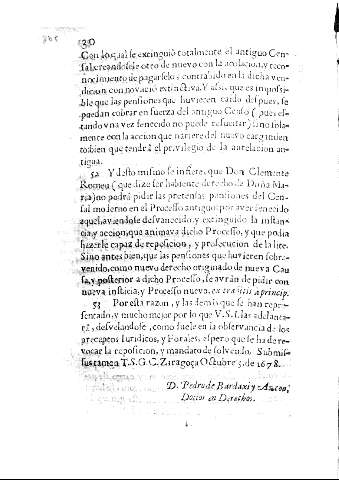 130
Con lo qual se extinguiò totalmente el antiguo Cen-
sal, creandose otro de nuevo con la anulacion, y reco-
nocimiento de pagarselos contrahido en la dicha ven-
dicion con novaciõ extinctiva. Y assi, que es impossi-
ble que las pensiones que huvieren caido despues, se
puedan cobrar en fuerça del antiguo Censo (pues es-
tando una vez fenecido no puede resucitar) sino sola-
mente con la accion que naciere del nuevo cargamien
to bien que tendrà el privilegio de la antelacion an-
tigua.
52 Y desto mismo se infiere, que Don Clemente
Romeu (que dize ser habiente derecho de Doña Ma-
ria) no podrà pidir las pretensas pensiones del Cen-
sal moderno en el Processo antiguo; por aver fenecido
aquel, haviendose desvanecido, y extinguido la instan
cia, y accion, que animava dicho Processo, y que podia
hazerle capaz de reposicion, y prosecucion de la lite.
Sino antes bien, que las pensiones que huvieren sobre-
venido, como nuevo derecho originado de nueva Cau
sa, y posterior a dicho Processo, se avràn de pidir con
nueva instãcia, y Processo nuevo, ex traditis a princip.
53 Por esta razon, y las demàs que se han repre-
sentado, y mucho mejor por lo que V.S.I. las adelanta-
rà, desvelandose, como suele en la observancia de los
preceptos Iuridicos, y Forales, espero que se ha de re-
vocar la reposicion, y mandato de solvendo. Submis-
sus tamen T.S.G.C. Zaragoça Octubre 3. de 1678.
D. Pedro de Bardaxi y
Doctor en Derechos.